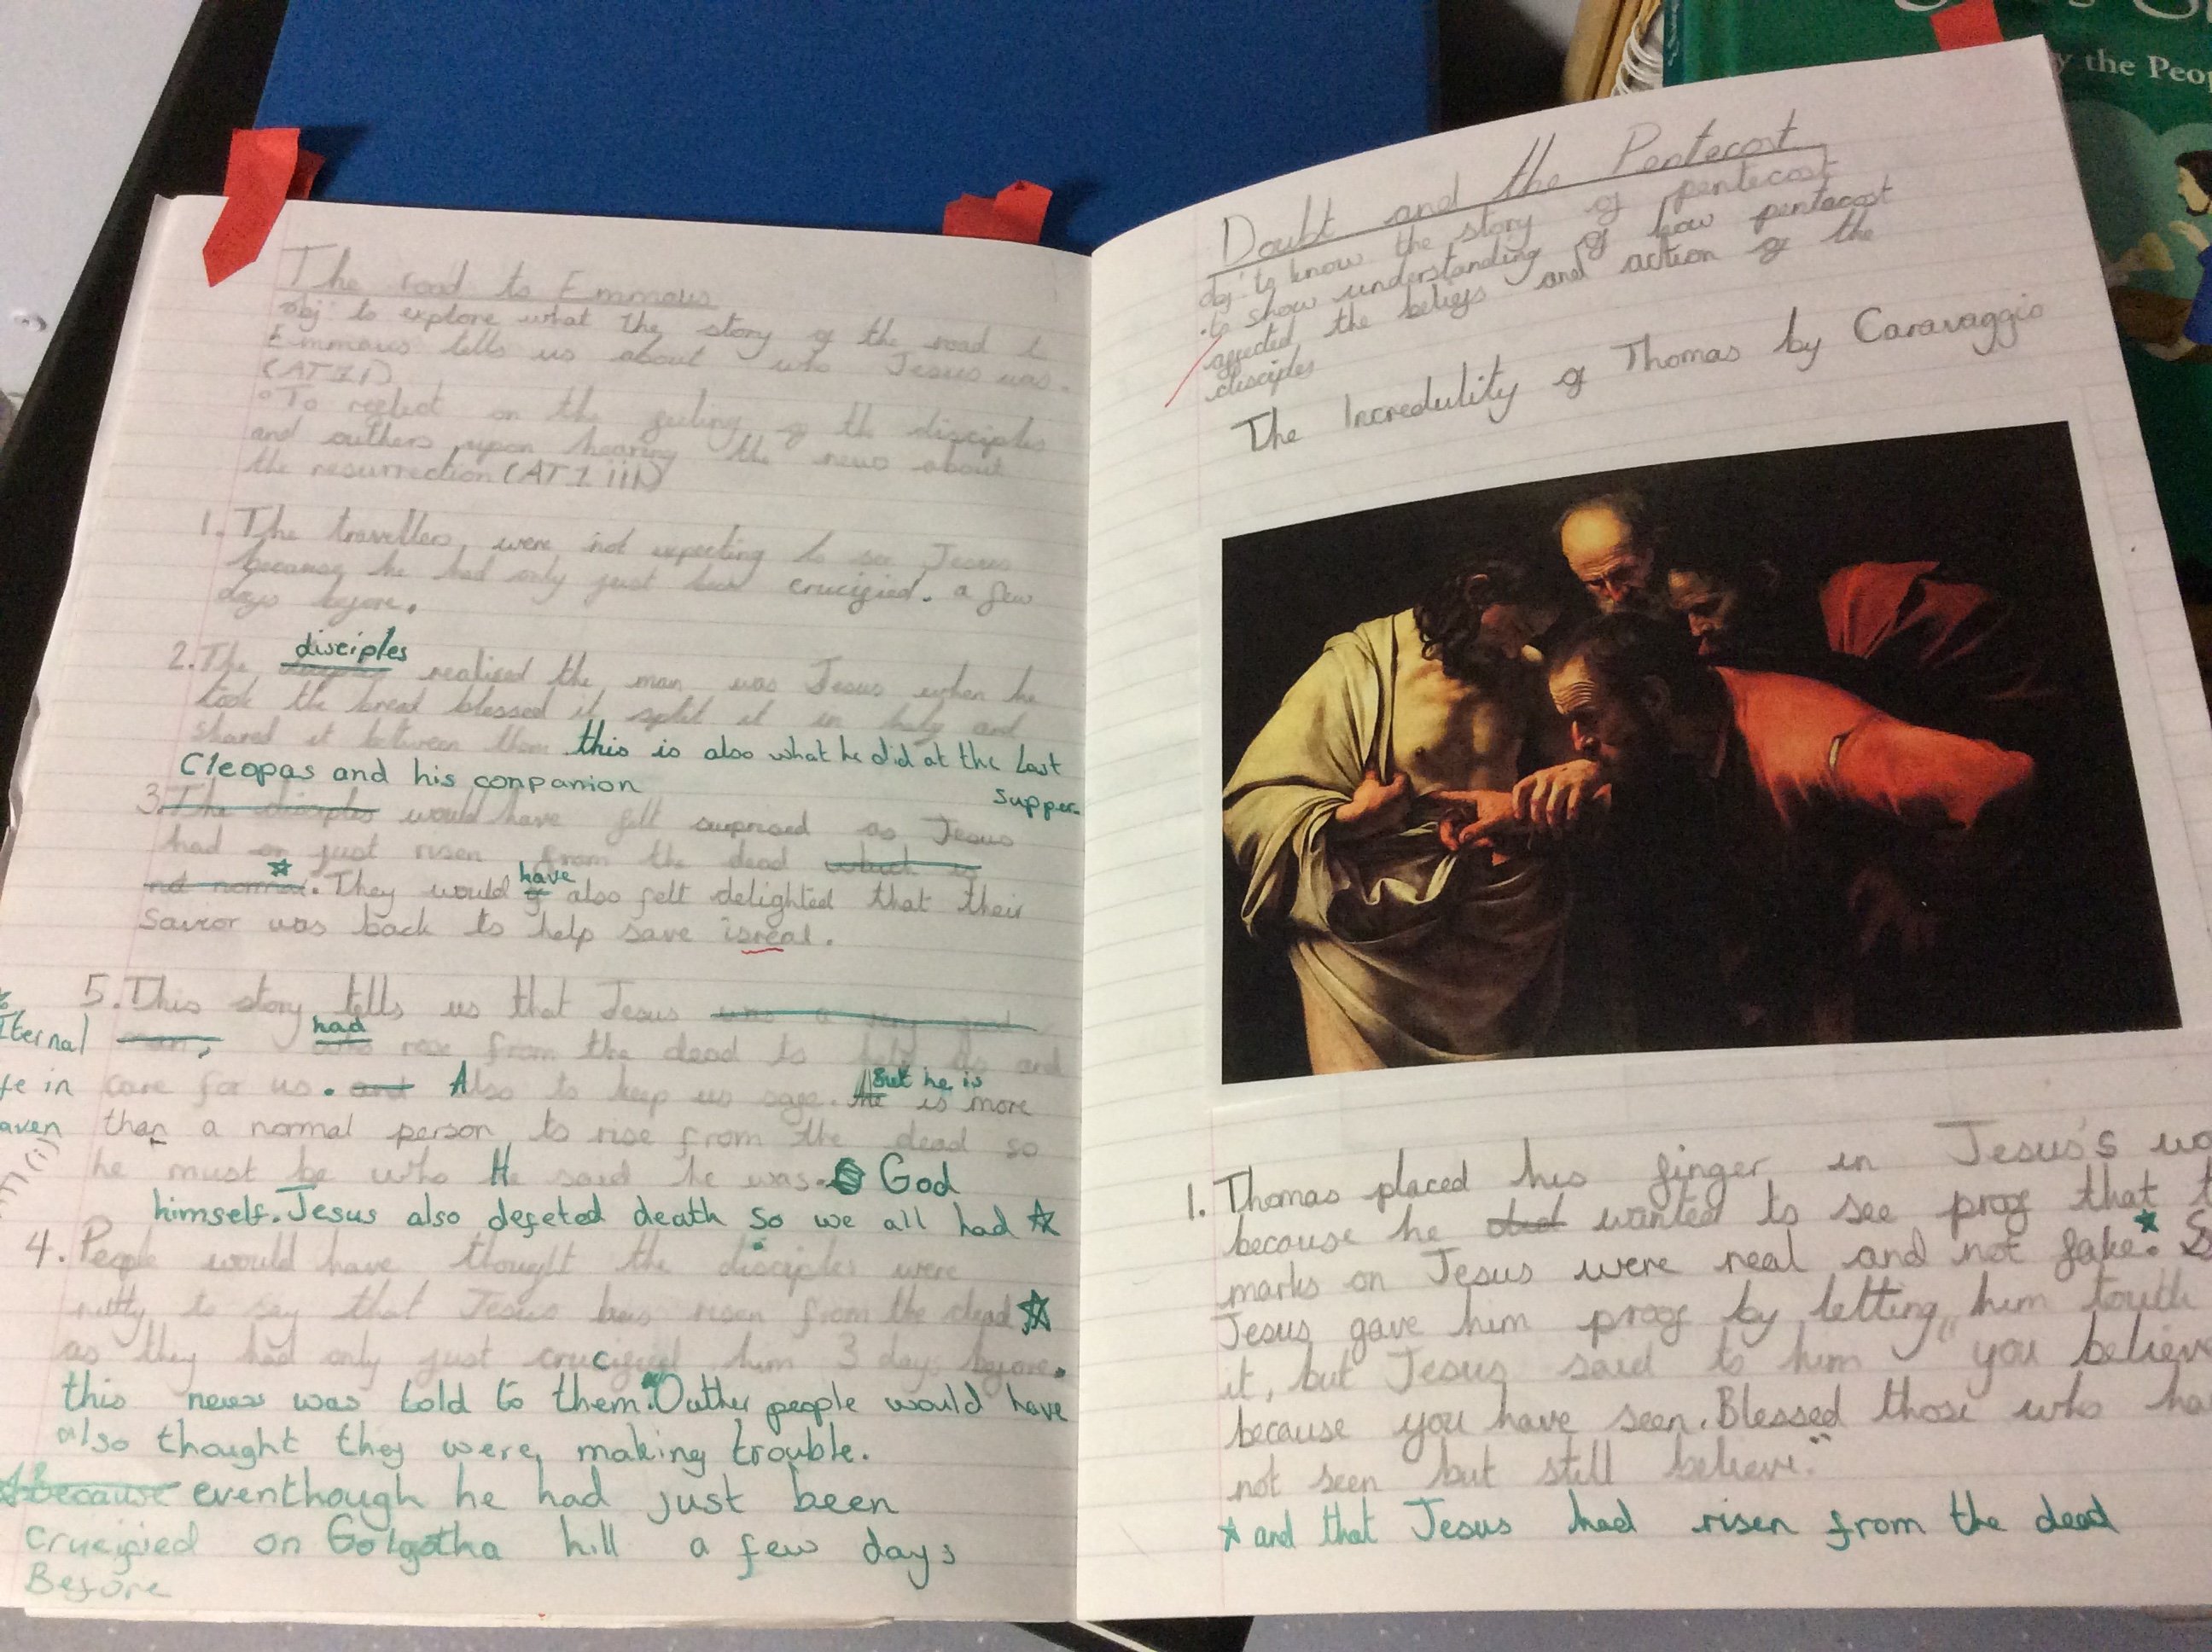 The road to Emmaus
obj: to explore what the story of the road to
Emmaus tells us about who Jesus was.
(AT1 i)
• To reflect on the feeling of the disciples
and outhers upon hearing the news about
the resurrection (AT1 iii)
1. The travellers were not expecting to see Jesus
because he had only just been crucified. a few
days before.
disciples
2. The realised the man was Jesus when he
took the bread blessed it split it in half and
shared it between them this is also what he did at the Last
supper
Cleopas and his conpanion
3. The disciples would have felt surprised as Jesus
had just risen from the dead which is
not normal. They would have also felt delighted that their
Savior was back to help save isreal.
5. This story tells us that Jesus was a very good
man, had rose from the dead to help us and
care for us. and Also to keep us safe. But he is more
than a normal person to rise from the dead so
he must be who He said he was. God
himself. Jesus also defeted death so we all had ☆
☆
Eternal
life in
heaven
(i)
4. People would have thought the disciples were
nutty to say that Jesus has risen from the dead ☆
as they had only just crucified him 3 days before.
this news was told to them. Outher people would have
also thought they were making trouble.
☆ because eventhough he had just been
crucified on Golgotha hill a few days
Before
Doubt and the Pentecost
obj: to know the story of pentecost
• to show understanding of how pentecost
affected the beliefs and action of the
disciples
The Incredulity of Thomas by Caravaggio
1. Thomas placed his finger in Jesus's
because he wanted to see proof that
marks on Jesus were real and not fake.☆
Jesus gave him proof by letting him touth
it, but Jesus said to him "you believe
because you have seen. Blessed those who
not seen but still believe."
☆ and that Jesus had risen from the dead
y the Peop